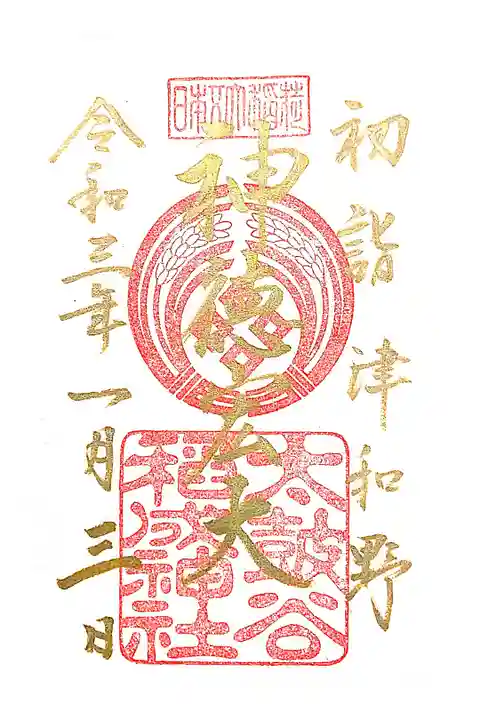 初詣 津和野
日本五大稲荷
神徳宏大
太皷谷
稲成神社
令和三年 一月 三日